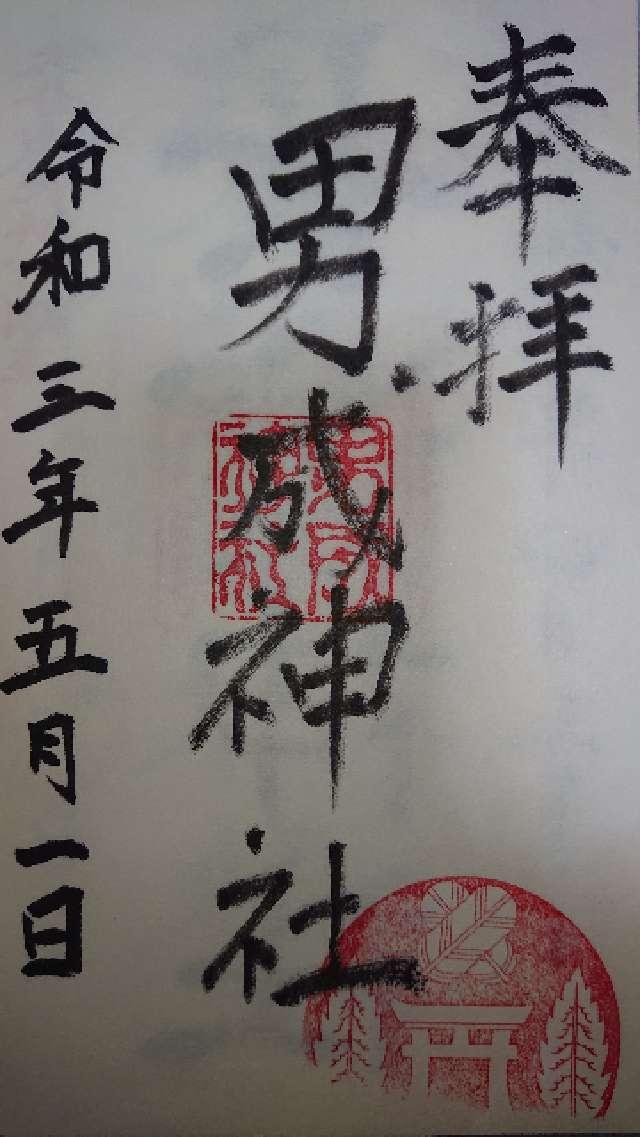 奉拝
男成神社
男成
神社
令和三年五月一日